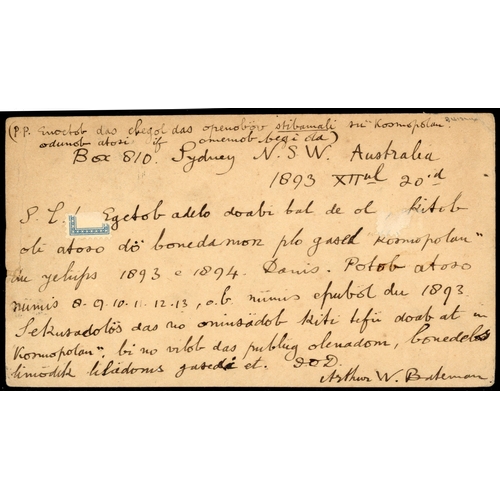 (P.P. Enoctob das chegol das openoböv stibamali su „Kosmopolan
odunob atosi if onemom begi da)
Box 810. Sydney N.S.W. Australia
1893 XIIul 20id
S. L.! Egetob adelo doabi bal de ol kitob
olé atoso dö bonedam oz plo gased Kosmopolan"
du yelups 1893 e 1894. Danis. Potob atoso
numis 8-9.10.11.12.13, o.b. nünus epubol du 1893
Sekusadolös das no oninsädob kiti tefü doab at in
Kosmopolan", bi no vilob das publug olenadom, bonedolös
limödik lisädoms gasedi et.
Arthur W. Bateman